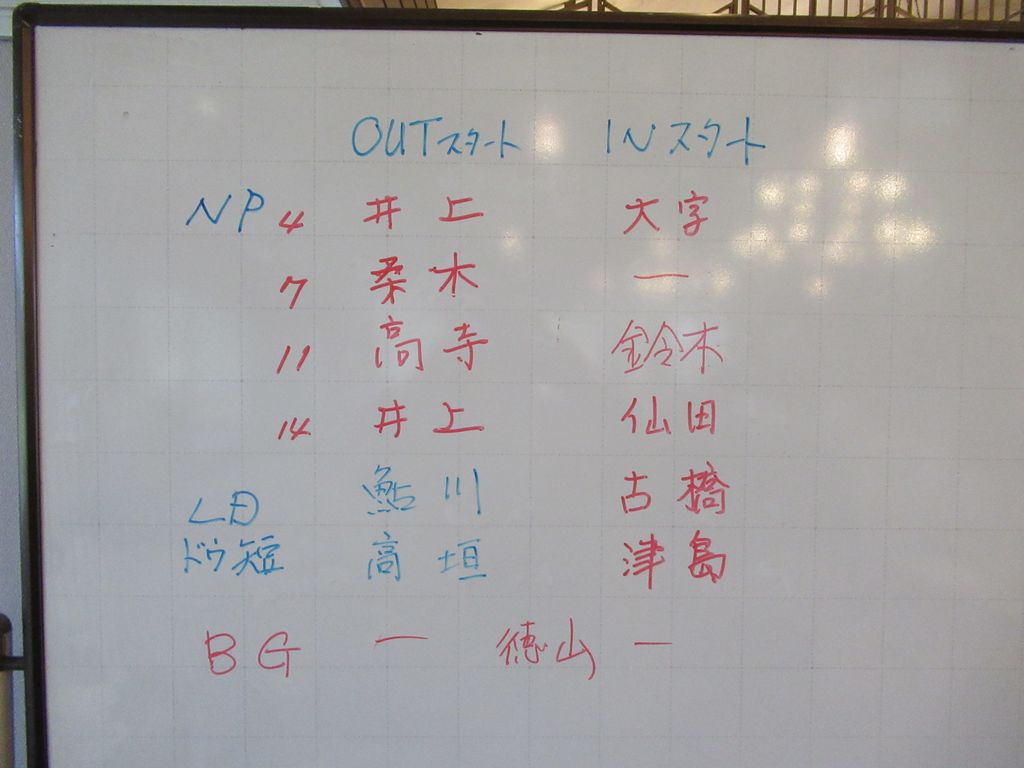 OUTスタート INスタート
NP 4 井上 大字
7 桑木 —
11 高寺 鈴木
14 井上 仙田
LD 鮎川 古橋
ドウ短 高垣 津島
BG — 徳山 —